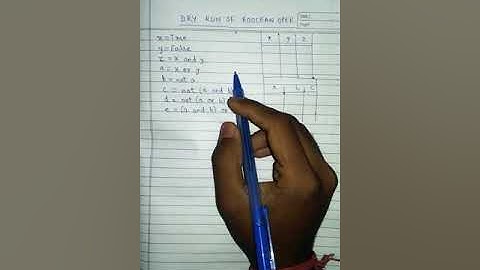 DRY RUN OF BOOLEAN OPER
x y z
x = True
y = False
z = x and y
a = x or y
b = not a
a b c
c = not (a and b)
d = not (a or b)
e = (a and b) or